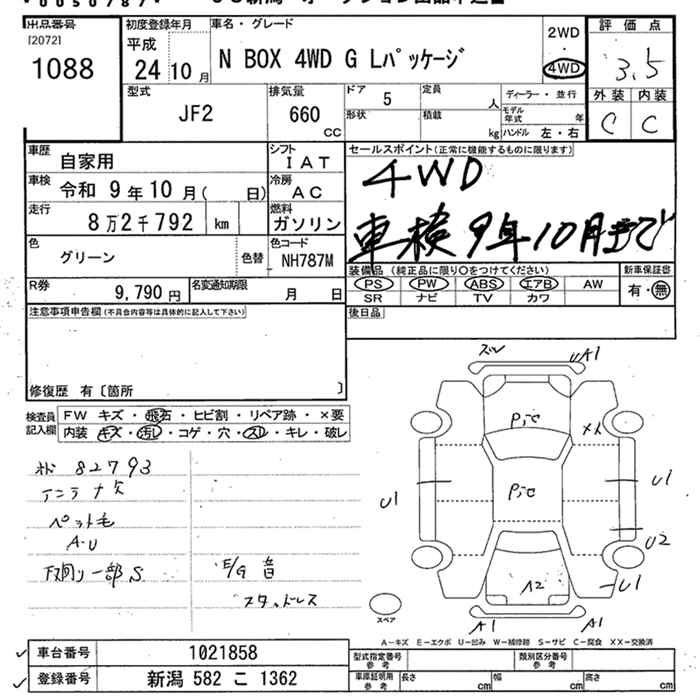 出品番号
[2072]
1088
初度登録年月
平成
24 10 月
車名・グレード
N BOX 4WD G Lパッケージ
2WD
・
4WD
評価点
3.5
型式
JF2
排気量
660
CC
ドア
5
定員
人
ディーラー・並行
形状
積載
kg
モデル年式
年
ハンドル 左・右
外装 内装
C C
車歴
自家用
シフト
IAT
車検
令和 9年10月( 日)
冷房
AC
走行
8万2千792 km
燃料
ガソリン
色
グリーン
色替
色コード
NH787M
R券
9,790 円
名変通知期限
月 日
セールスポイント(正常に機能するものに限ります)
4WD
車検 9年10月まで
装備品 (純正品に限り○をつけてください)
PS PW ABS エアB AW
SR ナビ TV カワ
新車保証書
有・無
後日品
注意事項申告欄(不具合内容等は具体的に記入して下さい)
修復歴 有〔箇所 〕
検査員記入欄
FW キズ・飛石・ヒビ割・リペア跡・×要
内装 キズ・汚レ・コゲ・穴・スレ・キレ・破レ
82793
アンテナ欠
ペット毛
A・U
下廻り一部S
E/G 音
スタッドレス
ズレ
A1
U1
U1
U2
U1
A2
A1
A1
スペア
A-キズ E-エクボ U-凹み W-補修跡 S-サビ C-腐食 XX-交換済
車台番号
1021858
型式指定番号
参考
類別区分番号
参考
登録番号
新潟 582 こ 1362
車庫証明用
参考
長さ cm
幅 cm
高さ cm